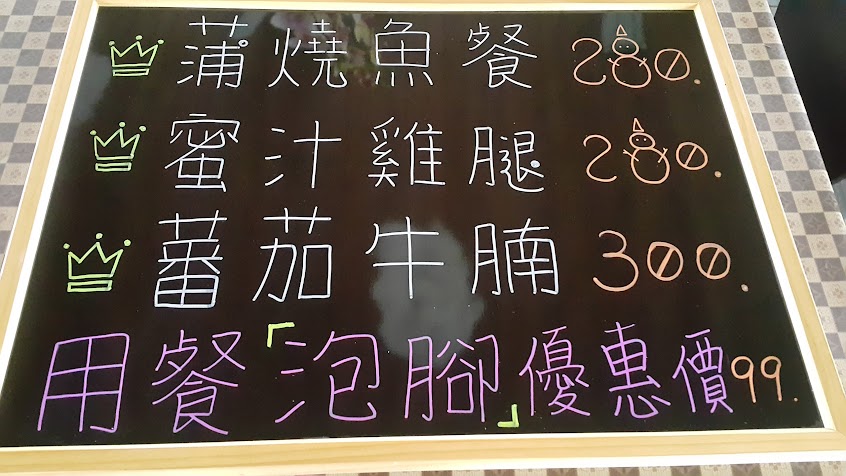 蒲燒魚餐 280.
蜜汁雞腿 280.
蕃茄牛腩 300.
用餐「泡腳」優惠價99.